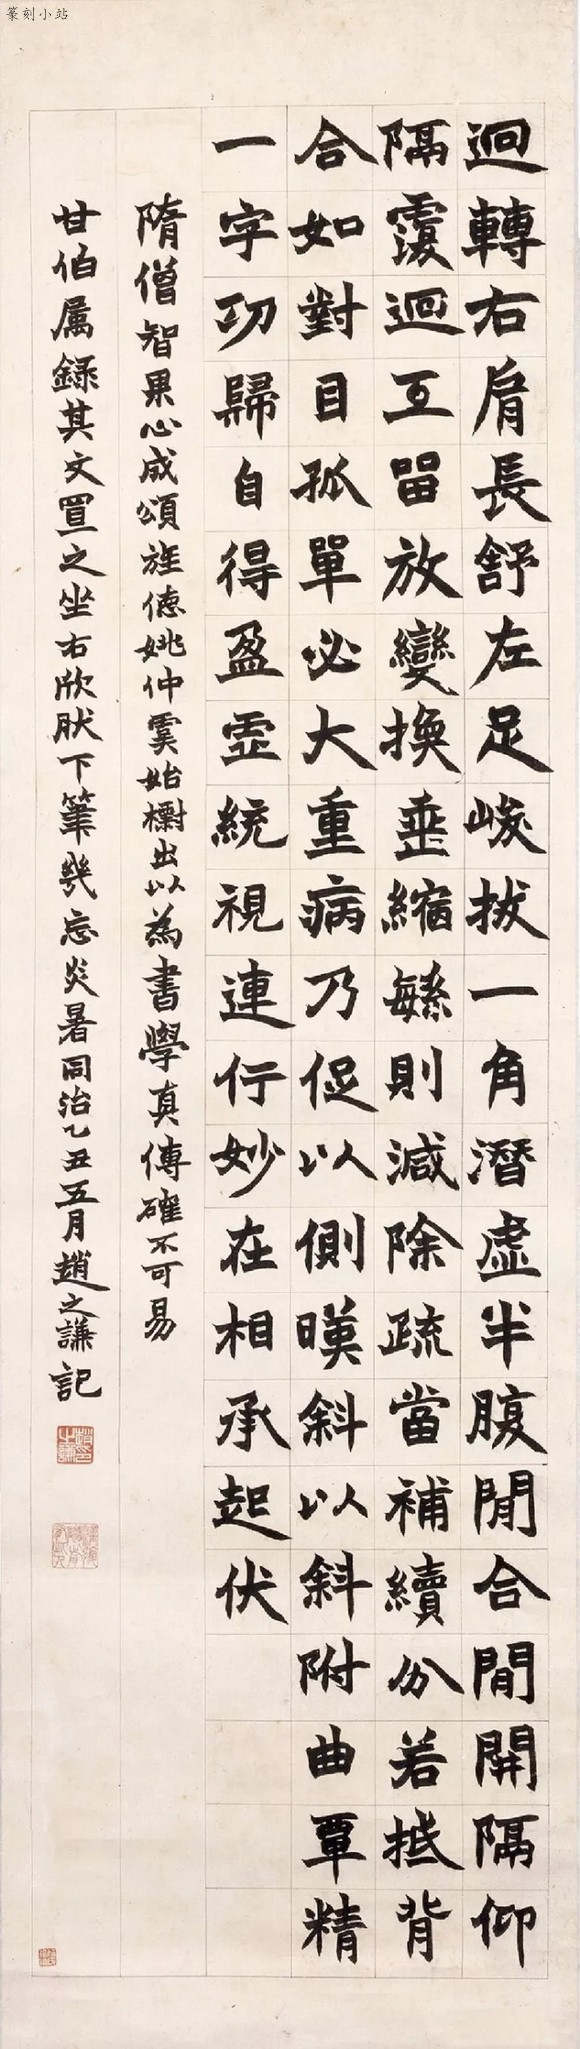 篆刻小站
迴轉右肩長舒左足峻拔一角潛虛半腹閒合閒開隔仰
隔覆迴互留放變換垂縮緐則減除疏當補續分若抵背
合如對目孤單必大重病乃促以側暎斜以斜附曲覃精
一字功歸自得盈虛統視連行妙在相承起伏
隋僧智果心成頌旌德姚仲虞始櫥出以為書學真傳確不可易
甘伯屬錄其文置之坐右欣肰下筆幾忘炎暑同治乙丑五月趙之謙記